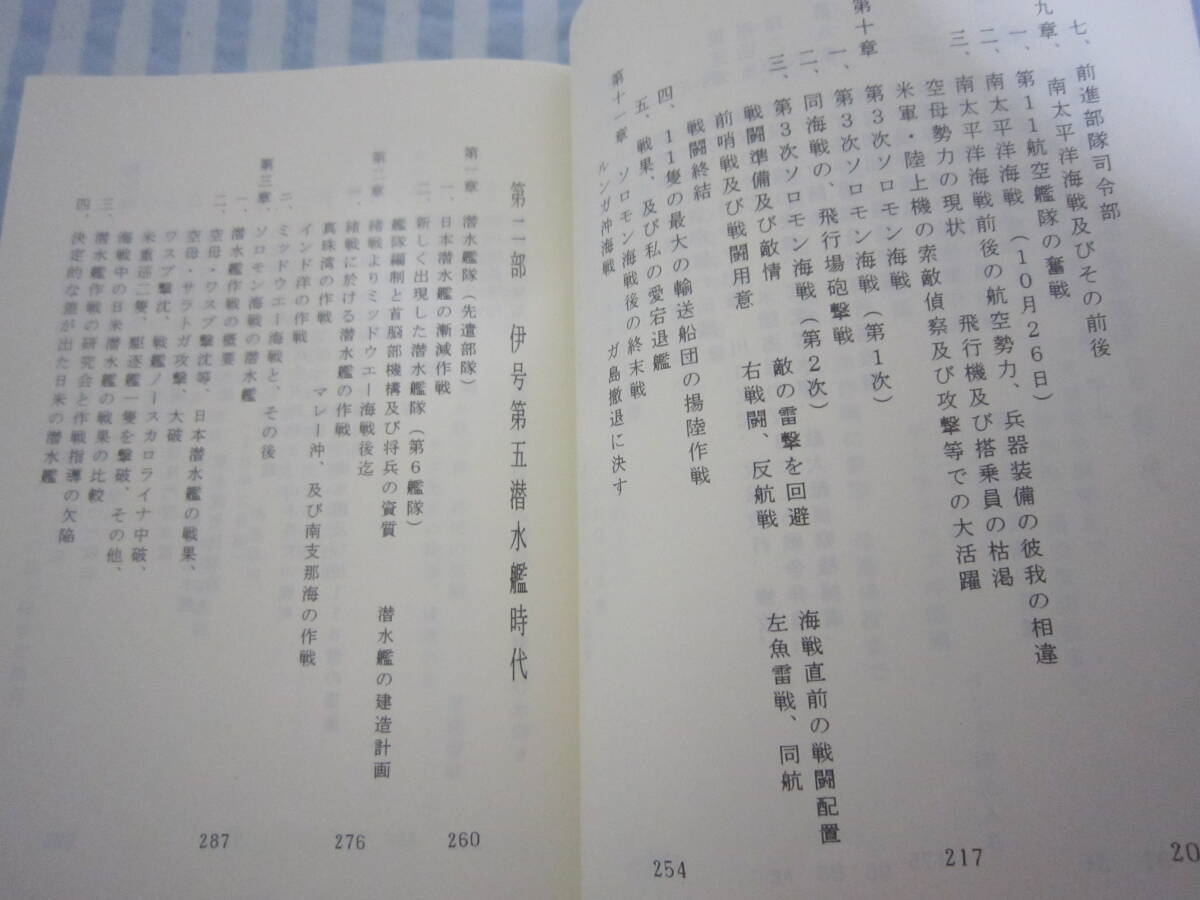 七、前進部隊司令部
九章、南太平洋海戦及びその前後
一、第11航空艦隊の奮戦
二、南太平洋海戦 (10月26日)
南太平洋海戦前後の航空勢力、兵器装備の彼我の相違
三、空母勢力の現状 飛行機及び搭乗員の枯渇
米軍・陸上機の索敵偵察及び攻撃等での大活躍
20
第十章 第3次ソロモン海戦
一、第3次ソロモン海戦(第1次)
同海戦の、飛行場砲撃戦
二、第3次ソロモン海戦(第2次)
三、戦闘準備及び敵情 敵の雷撃を回避 海戦直前の戦闘配置
前哨戦及び戦闘用意 右戦闘、反航戦 左魚雷戦、同航
戦闘終結
四、11隻の最大の輸送船団の揚陸作戦
五、戦果、及び私の愛宕退艦
217
第十一章 ソロモン海戦後の終末戦
ルンガ沖海戦 ガ島撤退に決す
254
第二部 伊号第五潜水艦時代
第一章 潜水艦隊(先遣部隊)
一、日本潜水艦の漸減作戦
二、新しく出現した潜水艦隊(第6艦隊)
艦隊編制と首脳部機構及び将兵の資質 潜水艦の建造計画
260
第二章 緒戦よりミッドウエー海戦後迄
一、緒戦に於ける潜水艦の作戦
真珠湾の作戦 マレー沖、及び南支那海の作戦
インド洋の作戦
二、ミッドウエー海戦と、その後
276
第三章、ソロモン海戦の潜水艦
一、潜水艦作戦の概要
二、空母・ワスプ撃沈等、日本潜水艦の戦果、
空母・サラトガ攻撃、大破
ワスプ撃沈、戦艦ノースカロライナ中破、
米重巡二隻、駆逐艦一隻を撃破、その他、
三、海戦中の日米潜水艦の戦果の比較
潜水艦作戦の研究会と作戦指導の欠陥
四、決定的な差が出た日米の潜水艦
287